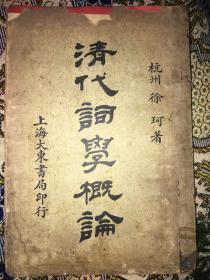 杭州 徐珂著
清代詞學概論
上海大東書局印行